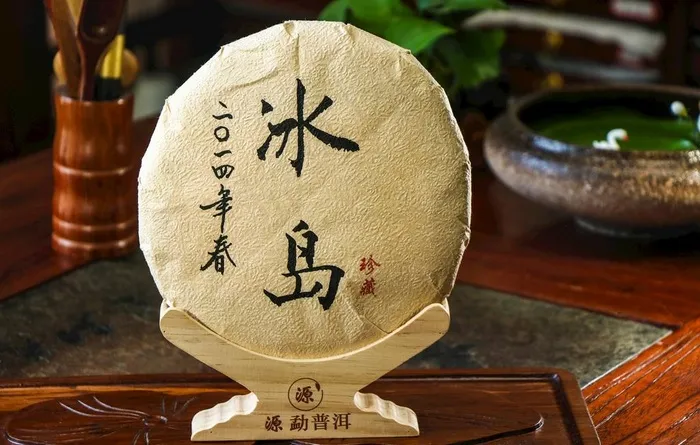 冰岛
二〇一四年春
珍藏
源
源 勐普洱